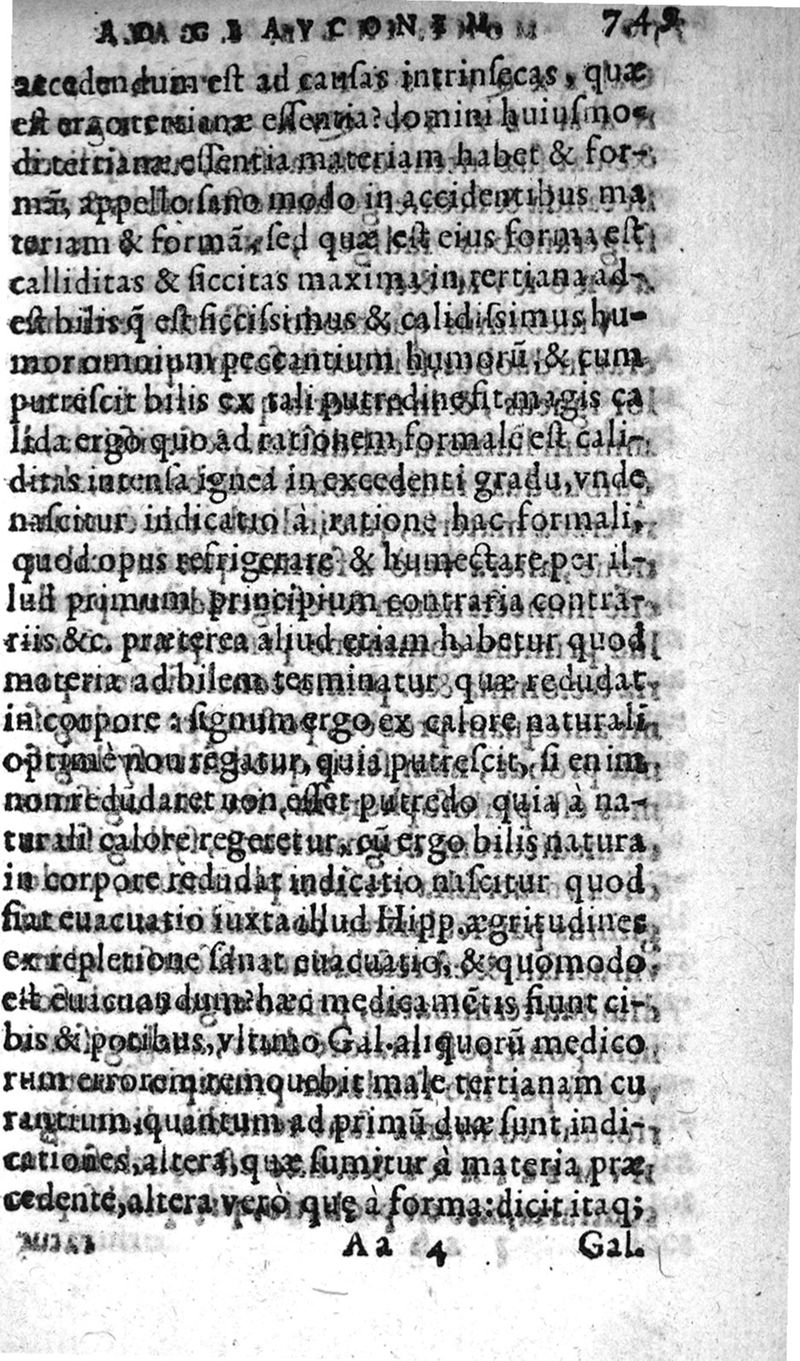 AD GLAVCONEM
accedendum est ad causas intrinsecas, quæ
est ergo tertianæ essentia? domini huiusmo-
di tertianæ essentia materiam habet & for-
mã, appello sano modo in accidentibus ma
teriam & formã, sed quæ est eius forma est
calliditas & siccitas maxima in tertiana ad-
est bilis q̃ est siccissimus & calidissimus hu-
mor omnium peccantium humorũ, & cum
putrescit bilis ex tali putredine fit magis ca
lida ergo quo ad rationem formalẽ est cali-
ditas intensa ignea in excedenti gradu, vnde
nascitur indicatio à ratione hac formali,
quod opus refrigerare & humectare per il-
lud primum principium contraria contra-
riis &c. præterea aliud etiam habetur quod
materia ad bilem terminatur quæ redũdat
in corpore : signum ergo ex calore naturali
optimè non regatur, quia putrescit, si enim
non redũdaret non esset putredo quia à na-
turali calore regeretur, cũ ergo bilis natura
in corpore redũdat indicatio nascitur quod
fiat euacuatio iuxta illud Hipp. ægritudines
ex repletione sanat euacuatio, & quomodo
est euacuandum? hæc medicamẽtis fiunt ci-
bis & potibus, vltimo Gal. aliquorũ medico
rum errorem male tertianam cu
rantium, quantum ad primũ duæ sunt indi-
cationes, altera, quæ sumitur à materia præ
cedente, altera verò quę à forma: dicit itaq;
Aa 4 Gal.